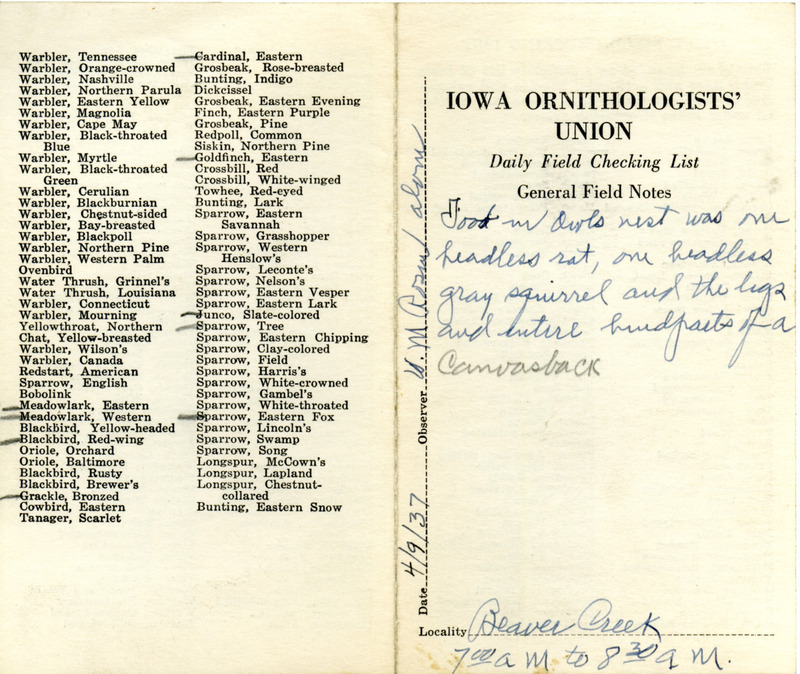 Warbler, Tennessee
Warbler, Orange-crowned
Warbler, Nashville
Warbler, Northern Parula
Warbler, Eastern Yellow
Warbler, Magnolia
Warbler, Cape May
Warbler, Black-throated
Blue
Warbler, Myrtle
Warbler, Black-throated
Green
Warbler, Cerulian
Warbler, Blackburnian
Warbler, Chestnut-sided
Warbler, Bay-breasted
Warbler, Blackpoll
Warbler, Northern Pine
Warbler, Western Palm
Ovenbird
Water Thrush, Grinnel's
Water Thrush, Louisiana
Warbler, Connecticut
Warbler, Mourning
Yellowthroat, Northern
Chat, Yellow-breasted
Warbler, Wilson's
Warbler, Canada
Redstart, American
Sparrow, English
Bobolink
Meadowlark, Eastern
Meadowlark, Western
Blackbird, Yellow-headed
Blackbird, Red-wing
Oriole, Orchard
Oriole, Baltimore
Blackbird, Rusty
Blackbird, Brewer's
Grackle, Bronzed
Cowbird, Eastern
Tanager, Scarlet
Cardinal, Eastern
Grosbeak, Rose-breasted
Bunting, Indigo
Dickcissel
Grosbeak, Eastern Evening
Finch, Eastern Purple
Grosbeak, Pine
Redpoll, Common
Siskin, Northern Pine
Goldfinch, Eastern
Crossbill, Red
Crossbill, White-winged
Towhee, Red-eyed
Bunting, Lark
Sparrow, Eastern
Savannah
Sparrow, Grasshopper
Sparrow, Western
Henslow's
Sparrow, Leconte's
Sparrow, Nelson's
Sparrow, Eastern Vesper
Sparrow, Eastern Lark
Junco, Slate-colored
Sparrow, Tree
Sparrow, Eastern Chipping
Sparrow, Clay-colored
Sparrow, Field
Sparrow, Harris's
Sparrow, White-crowned
Sparrow, Gambel's
Sparrow, White-throated
Sparrow, Eastern Fox
Sparrow, Lincoln's
Sparrow, Swamp
Sparrow, Song
Longspur, McCown's
Longspur, Lapland
Longspur, Chestnut-
collared
Bunting, Eastern Snow
Date 4/9/37 Observer W. M. Rosen alone
IOWA ORNITHOLOGISTS'
UNION
Daily Field Checking List
General Field Notes
Food in Owls nest was one
headless rat, one headless
gray squirrel and the legs
and entire hindparts of a
Canvasback
Locality Beaver Creek
7 00 a M to 8 30 a M.